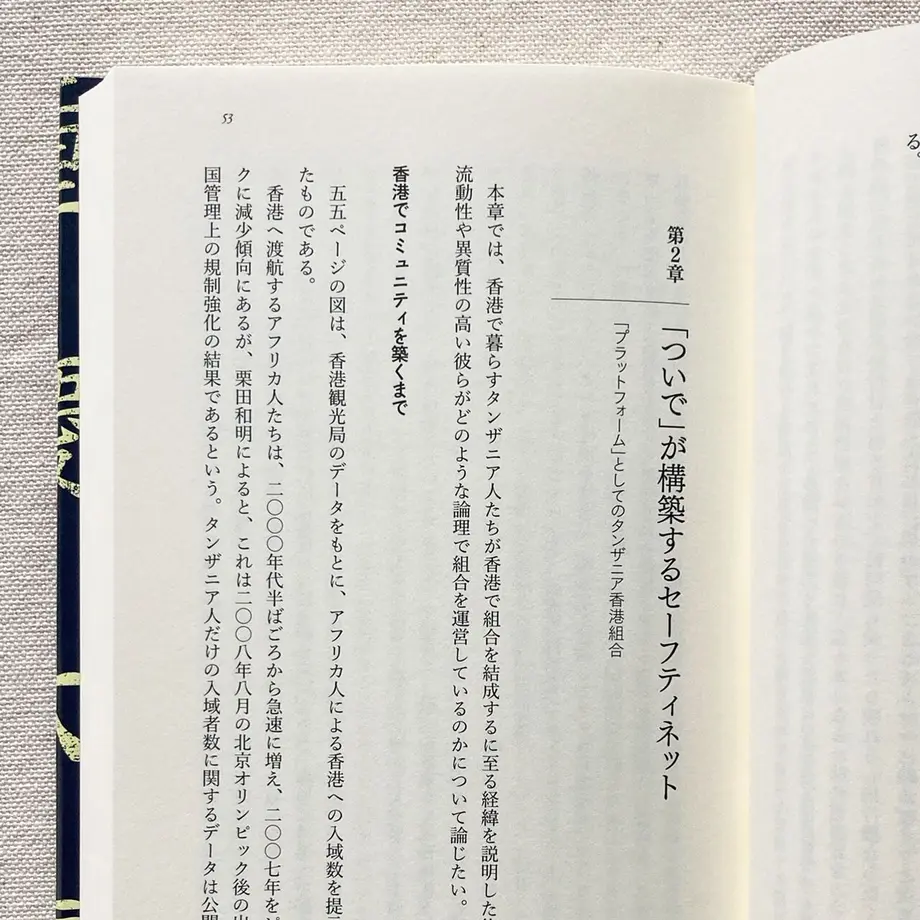 る。
第2章
「ついで」が構築するセーフティネット
「プラットフォーム」としてのタンザニア香港組合
本章では、香港で暮らすタンザニア人たちが香港で組合を結成するに至る経緯を説明した
流動性や異質性の高い彼らがどのような論理で組合を運営しているのかについて論じたい。
香港でコミュニティを築くまで
五五ページの図は、香港観光局のデータをもとに、アフリカ人による香港への入域数を提
たものである。
香港へ渡航するアフリカ人たちは、二〇〇〇年代半ばごろから急速に増え、二〇〇七年を
クに減少傾向にあるが、栗田和明によると、これは二〇〇八年八月の北京オリンピック後の
国管理上の規制強化の結果であるという。タンザニア人だけの入域者数に関するデータは公
53